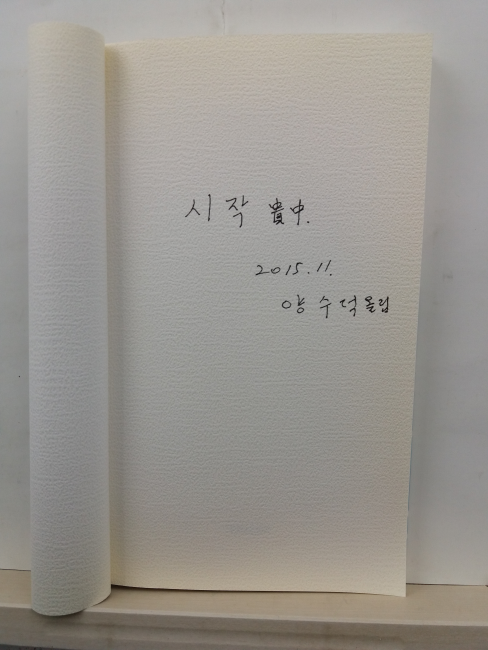 시작 貴中.
2015.11.
양수덕 올림